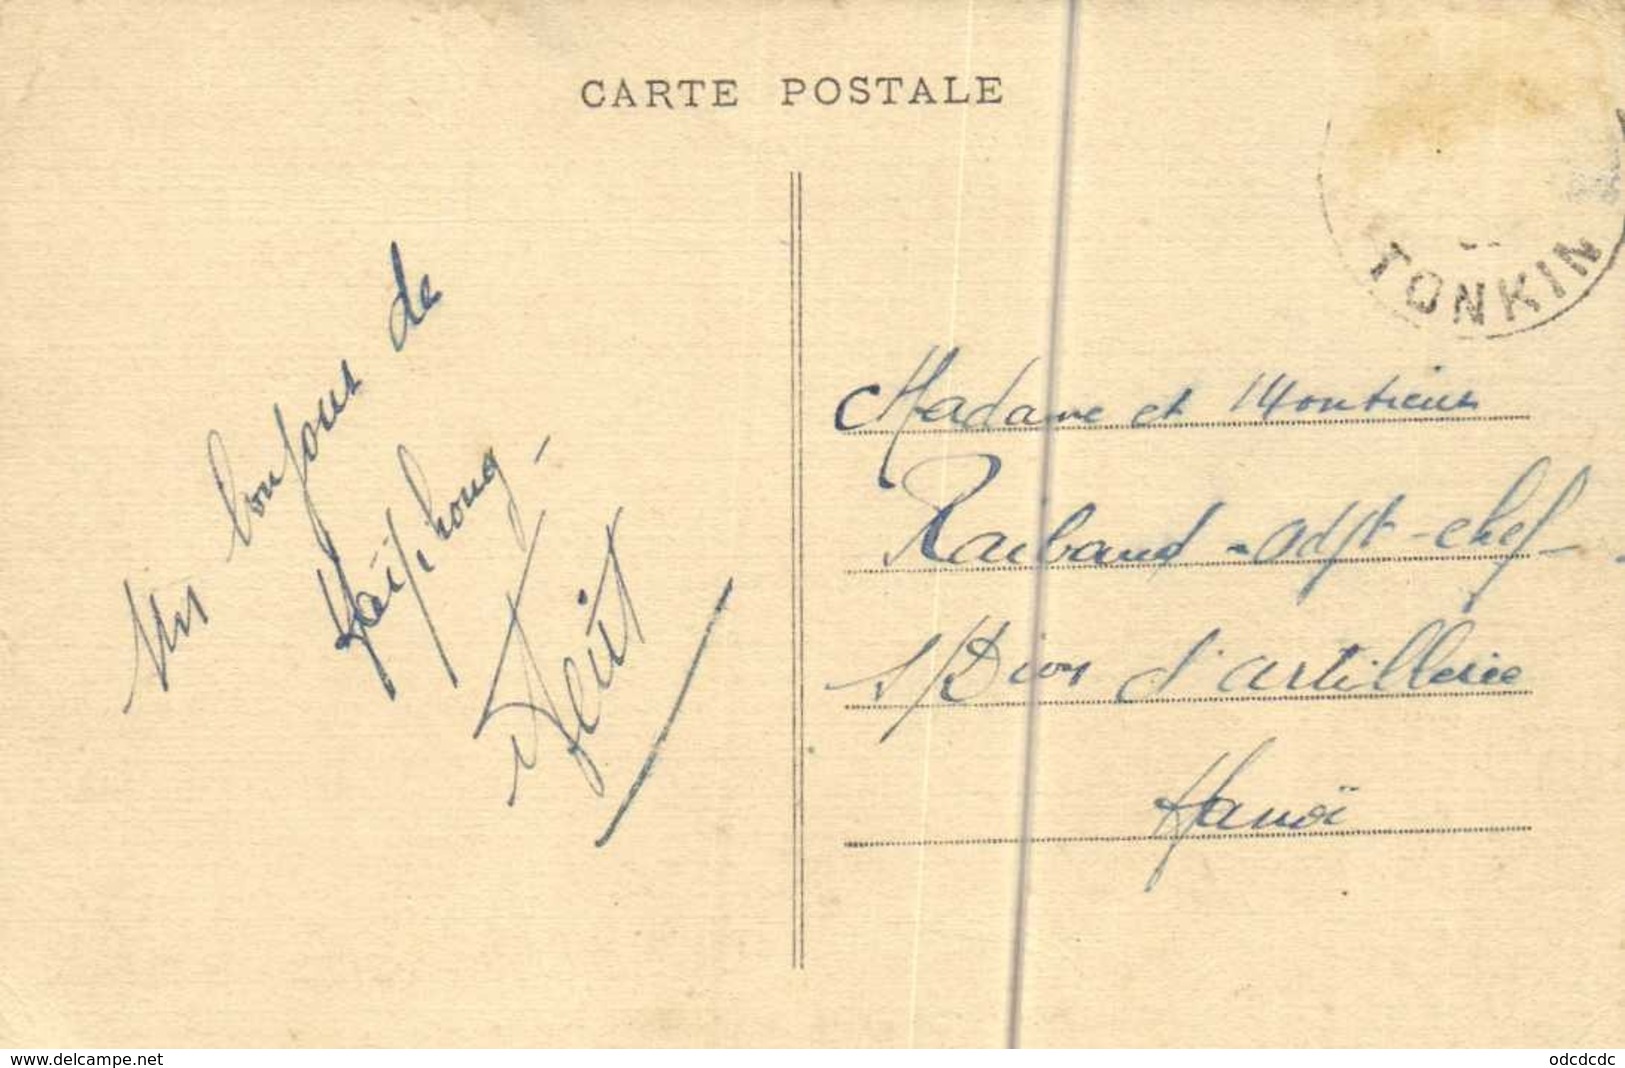 CARTE POSTALE
TONKIN
Un bonjour de
Haïphong -
Madame et Monsieur
Raibaud - Adjt - chef -
s/Dion d'artillerie
Hanoï
www.delcampe.net
odcdcdc